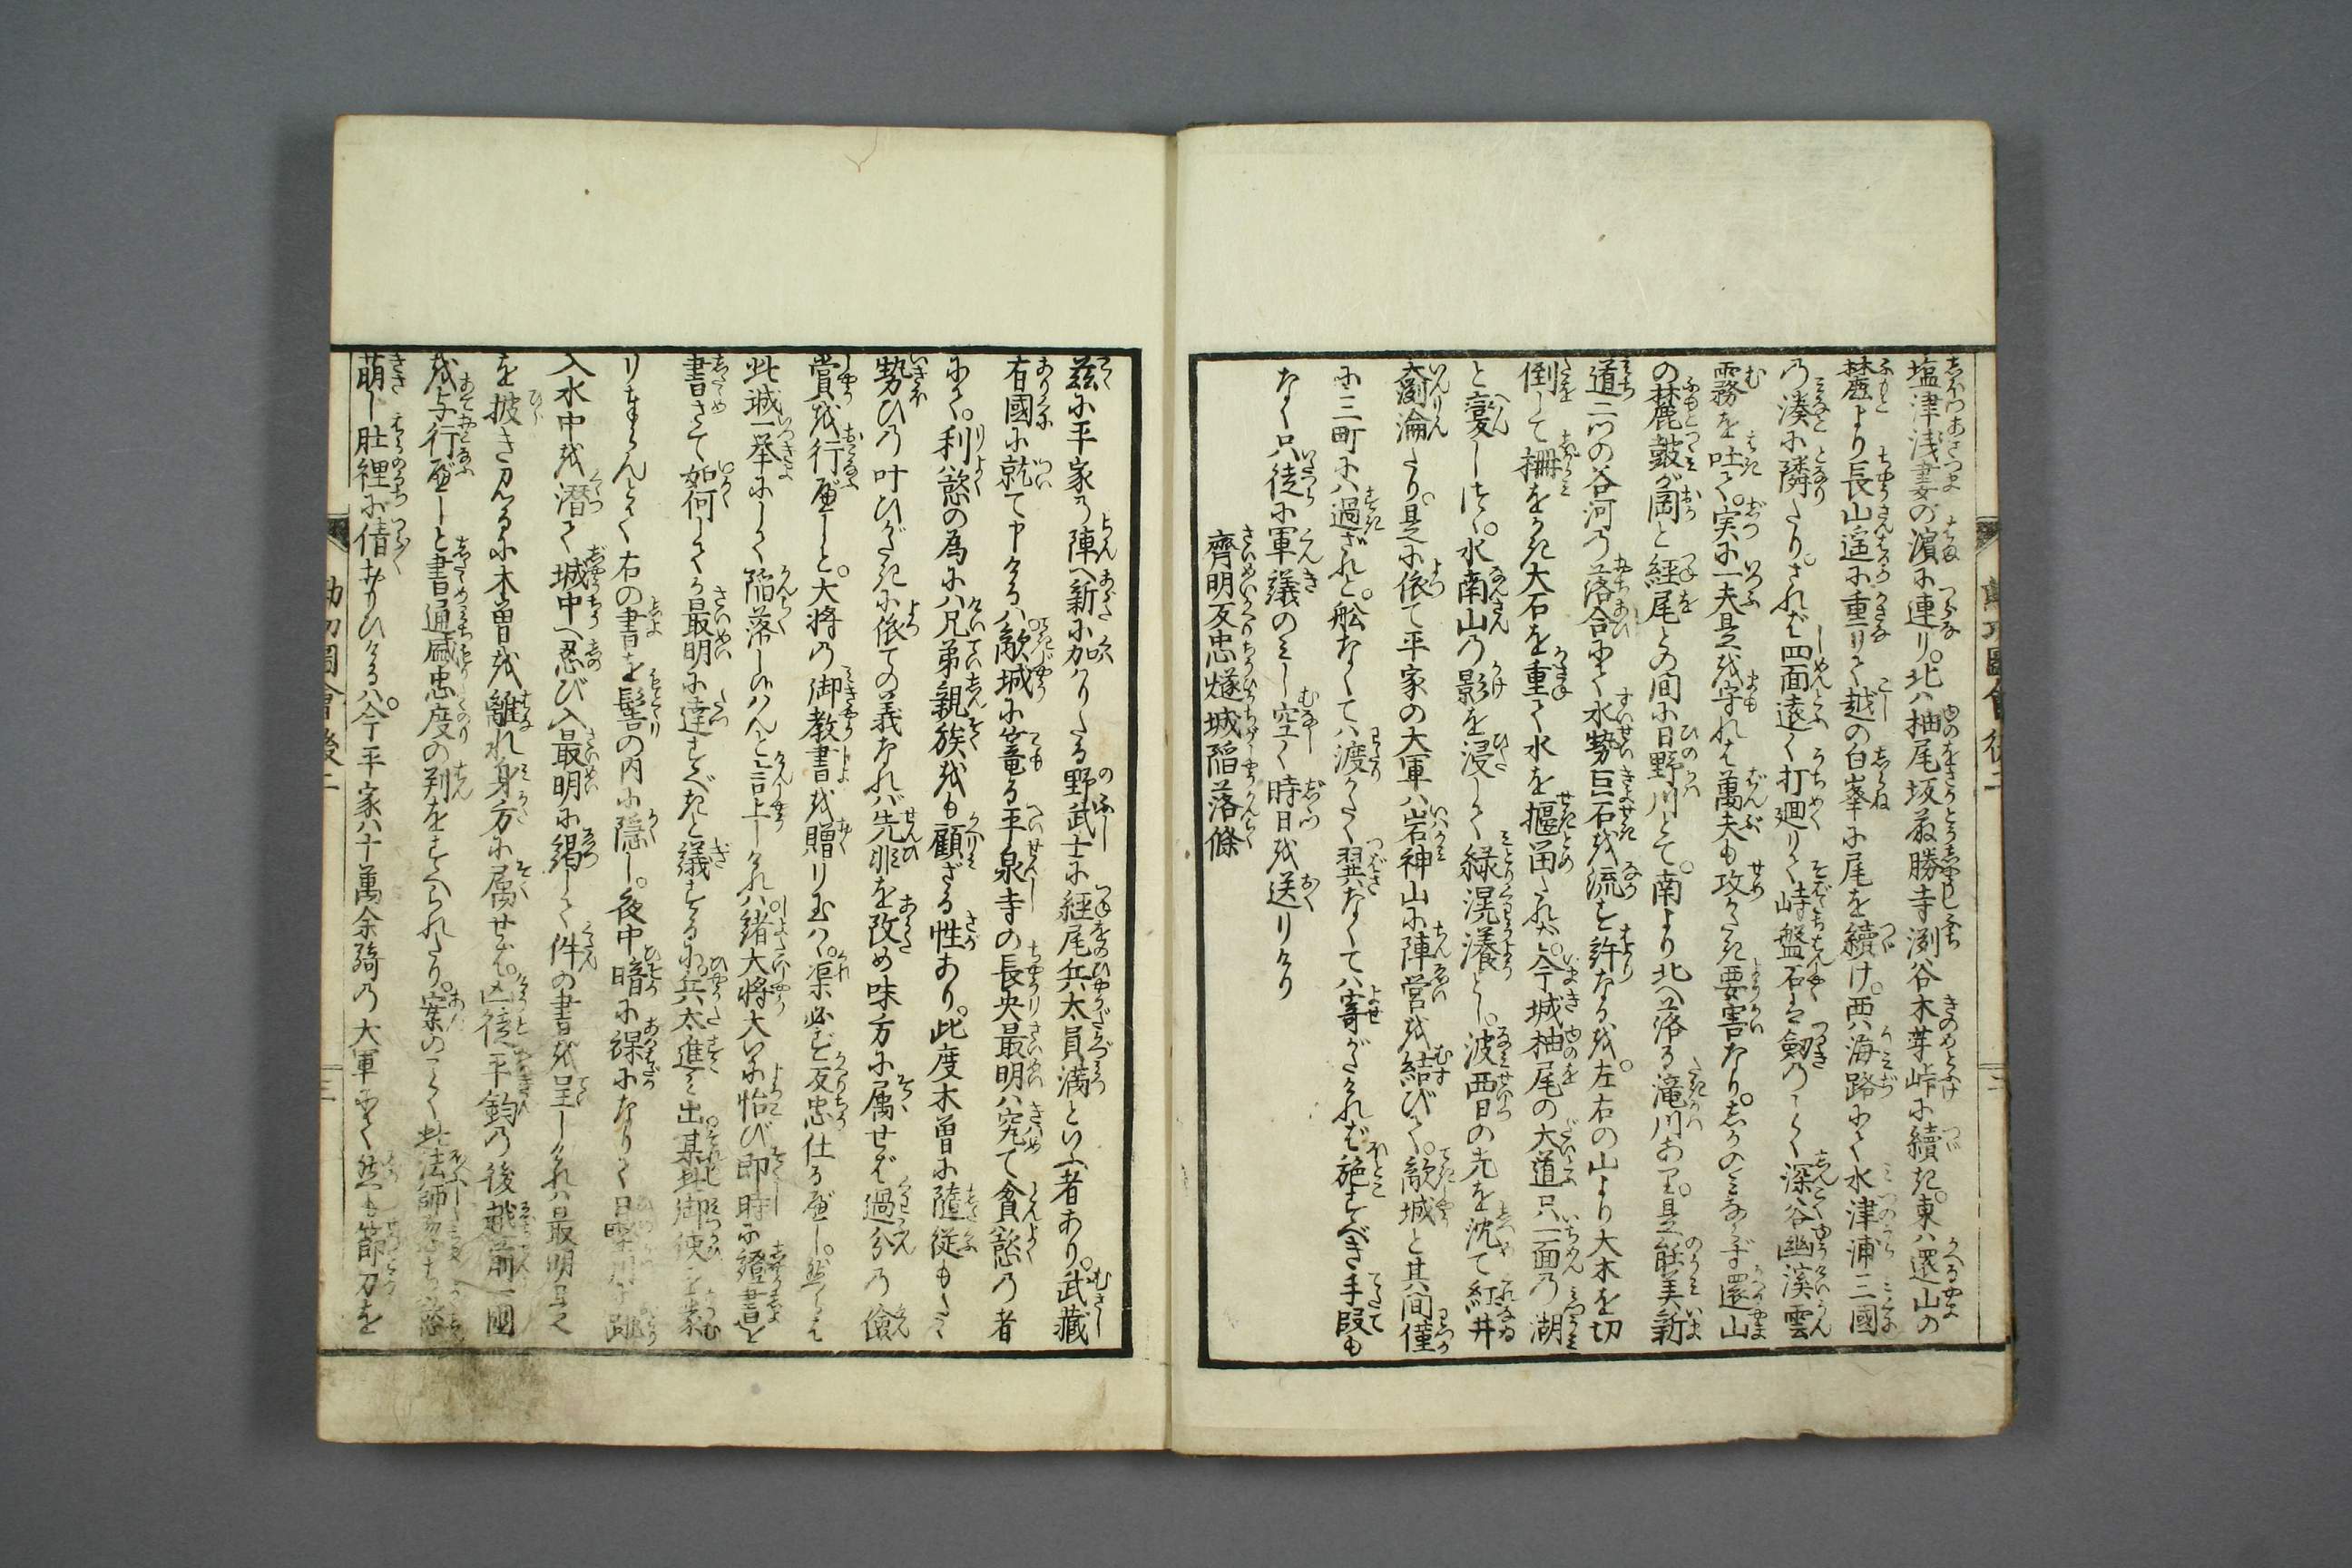 塩津浅妻の濵に連り。北ハ柚尾坂荻勝寺渕谷木芽峠に續き。東ハ還山の
麓より長山遥に重りて越の白峯に尾を續け。西ハ海路にて水津浦三國
の湊に隣たり。されバ四面遠く打廻りて峙盤石ハ劔のごとく深谷幽溪雲
霧を吐て。実に一夫是を守れバ萬夫も攻がたき要害なり。しかのミならず還山
の麓皷が岡と経尾との間に日野川とて。南より北へ落る滝川あり。是能美新
道二ツの谷河の落合にて水勢巨石を流す許なるを。左右の山より大木を切
倒して柵をかき大石を重て水を堰留たれバ。今城柚尾の大道只一面の湖
と変しけり。水南山の影を浸して緑滉瀁とし。波西日の光を沈て紅井
淪たり。是に依て平家の大軍ハ岩神山に陣営を結びて。敵城と其間僅
に三町にハ過ざれど。舩なくてハ渡りがたく翼なくてハ寄がたけれバ施すべき手段も
なく只徒に軍議のミし空く時日を送りけり
齊明反忠燧城陥落條
茲に平家の陣へ新に加りたる野武士に経尾兵太員満といふ者あり。武藏
右國に就て申けるハ敵城に篭る平泉寺の長吏最明ハ究て貪慾の者
にて。利慾の為にハ兄弟親族をも顧ざる性あり。此度木曽に隨従もたゞ
勢ひの叶ひがたきに依ての義なれバ先非を改め味方に属せバ過分の
賞を行べしと。大将の御教書を贈り玉ハヾ。渠必ず反忠仕るべし。然らバ
此城一挙にして陥落し候ハんと言上しけれバ諸大将大いに怡び即時に證書を
書さて如何してか最明に達すべきと議するに。兵太進ミ出。某御使を蒙
りまゐらんとて右の書を髻の内に隠し。夜中暗に裸になりて日野川に跳
入水中を潜て城中へ忍び入最明に謁して件の書を呈しけれバ最明是
を披き見るに木曽を離れ身方に属せバ。凶徒平鈞の後越前一國
を与行べしと書通盛忠度の判をすへられたり。案のごとく此法師忽ち慾
萌し肚裡に倩おもひけるハ。今平家八十萬余騎の大軍にて然も節刀を